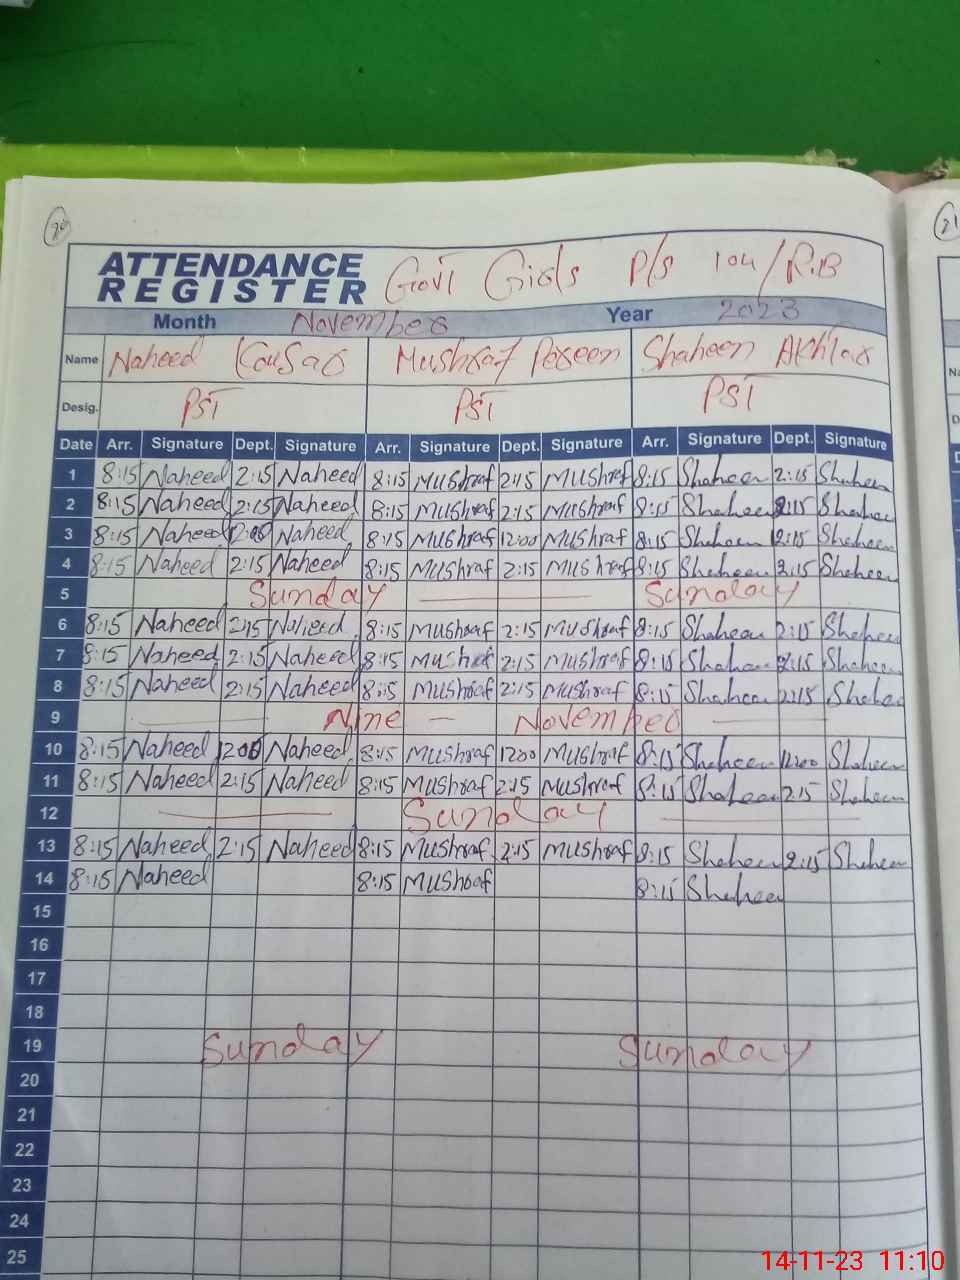 20
21
ATTENDANCE REGISTER Govt Girls P/S 104/R.B
Month November Year 2023
Name Naheed Kausar Mushraf Perveen Shaheen Akhtar
Desig. PST PST PST
Date Arr. Signature Dept. Signature Arr. Signature Dept. Signature Arr. Signature Dept. Signature
1 8:15 Naheed 2:15 Naheed 8:15 Mushraf 2:15 Mushraf 8:15 Shaheen 2:15 Shaheen
2 8:15 Naheed 2:15 Naheed 8:15 Mushraf 2:15 Mushraf 8:15 Shaheen 2:15 Shaheen
3 8:15 Naheed Naheed 8:15 Mushraf 12:00 Mushraf 8:15 Shaheen Shaheen
4 8:15 Naheed 2:15 Naheed 8:15 Mushraf 2:15 Mushraf 8:15 Shaheen 2:15 Shaheen
5 Sunday Sunday
6 8:15 Naheed 2:15 Naheed 8:15 Mushraf 2:15 Mushraf 8:15 Shaheen 2:15 Shaheen
7 8:15 Naheed 2:15 Naheed 8:15 Mushraf 2:15 Mushraf 8:15 Shaheen 2:15 Shaheen
8 8:15 Naheed 2:15 Naheed 8:15 Mushraf 2:15 Mushraf 8:15 Shaheen 2:15 Shaheen
9 Nine — November
10 8:15 Naheed 1200 Naheed 8:15 Mushraf 1200 Mushraf 8:15 Shaheen Shaheen
11 8:15 Naheed 2:15 Naheed 8:15 Mushraf 2:15 Mushraf 8:15 Shaheen 2:15 Shaheen
12 Sunday
13 8:15 Naheed 2:15 Naheed 8:15 Mushraf 2:15 Mushraf 8:15 Shaheen 2:15 Shaheen
14 8:15 Naheed 8:15 Mushraf 8:15 Shaheen
15
16
17
18
19 Sunday Sunday
20
21
22
23
24
25
14-11-23 11:10